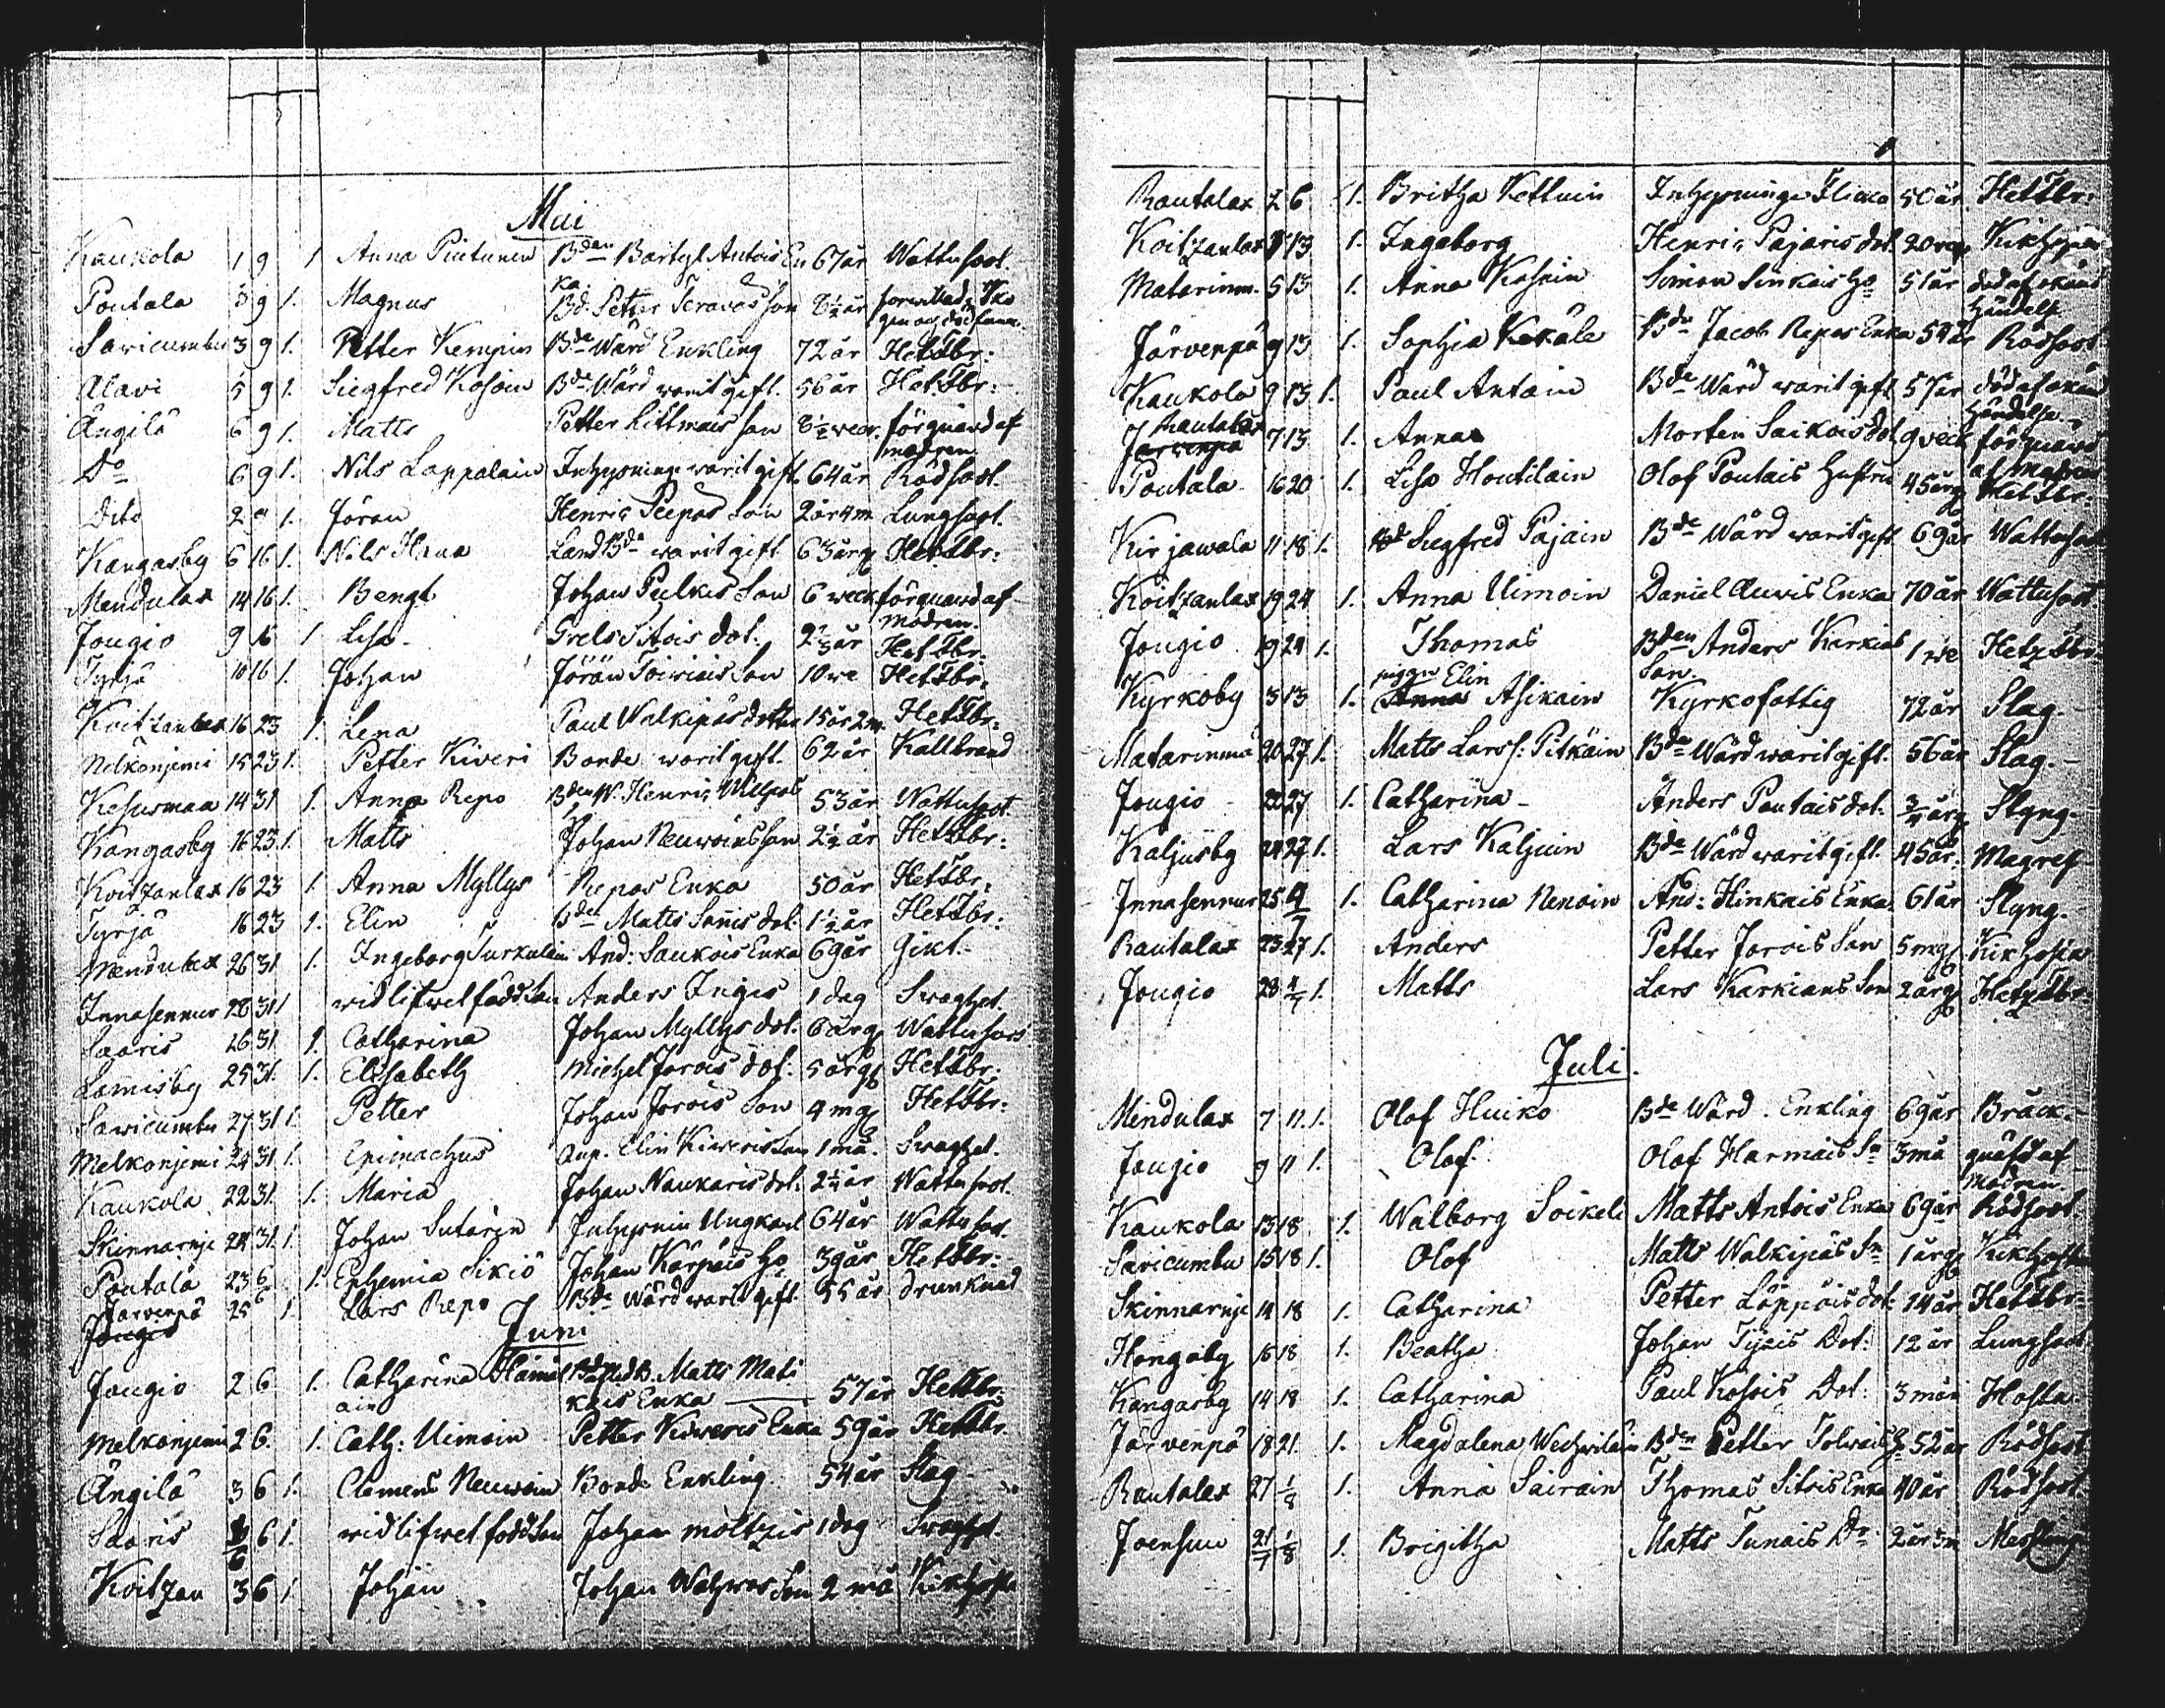 Mai
Kaukola 1 9 1 Anna Piutunen Bden Bartyl Antois En 67 år Wattusoot.
ka.
Poutala 3 9 1. Magnus Bd. Petter Teravas son 8½ år
Saricumbu 3 9 1. Petter Kempin Bde Wärd Enkling 72 år Het.Fbr:
Alavi 5 9 1. Siegfred Kosoin Bde Wärd warit gift. 56 år Het.Fbr:
Ängilä 6 9 1. Matts Petter Littmais son 8½ veck. förqvavd af
modren.
Do 6 9 1. Nils Lappalain Inhysning warit gift. 64 år Rödsoot.
Dito 2 9 1. Jöran Henric Peepos Son 2 år 4 m Lungsoot.
Kangasby 6 16 1. Nils Hava Land Bde warit gift 63 årg Het.Fbr:
Mendulax 14 16 1. Bengt Johan Pulkis Son 6 veck förqvavd af
modren.
Jougio 9 16 1 Lisa. Grels Sitois dot. Het.Fbr:
Tyrjä 10 16 1. Johan Jöran Toiviais Son 10 we Het.Fbr:
Koitzanlax 16 23 1. Lena Paul Walkipäs dotter 15 år 2 m. Het.Fbr:
Melkonjemi 15 23 1. Petter Kiveri Bonde warit gift. 62 år Kallbrand
Kesusmaa 14 31 1. Anna Repo 53 år Wattusoot.
Kangasby 16 23 1. Matts Johan Neuvoins son 2½ år Het.Fbr:
Koitzanlax 16 23 1. Anna Myllys Repos Enka 50 år Het.Fbr:
Tyrjä 16 23 1. Elin Bden Matts Sanis dot. 1½ år Het.Fbr:
Mendulax 26 31 1. Ingeborg Surkulain And: Saukois Enka 69 år Gikt.
Innasennur 28 31 1 wid lif wel född Son Anders Ingis 1 dag Swaghet
Saaris 26 31. 1. Catharina Johan Myllys dot. 6 årg Wattusoot
Lamisby 25 31. 1. Elisabeth Michel Jorois dot. 5 årg Het.Fbr:
Saricumbu 27 31 1. Petter Johan Jorois Son 4 mg Het.Fbr:
Melkonjemi 24 31 1. Epimachus Enp. Elin Kiveris Son 1 må. Swaghet.
Kaukola 22 31. 1. Maria Johan Naukaris dot. 2¼ år Wattusoot.
Skinnarnje 24 31. 1. Johan Sutarin Inhysnin Ungkarl 64 år Wattusoot.
Poutala 23 6 1. Ephemia Sikiö Johan Kärpäis Ho 39 år Het.Fbr:
Jarvenpä
Jougio 25 6 1. Lars Repo Bde Wärd warit gift. 55 år drunknad
Juni
Jougio 2 6 1. Catharina Hämäl
ain Matts Mati
kais Enka 57 år Het.Fbr:
Melkonjemi 2 6. 1. Cath: Uimoin Petter Kiweris Enka 59 år Het.Fbr.
Ängilä 3 6 1. Clemens Neuvoin Bonde Enkling 54 år Slag
Saaris 1/6 6 1. wid lif wel född Son Johan Moltzis 1 dag Swaghet.
Koitzan 3 6 1. Johan Johan Wahwas Son 2 må Kikhosta
Rautalax 2 6 1. Britha Kettuin Inhysninge Flicka 50 år. Het.Fbr:
Koitzanlax 13 1. Ingeborg Henric Pajaris dot. 20 veg Kikhosta
Matarinm. 5 13 1. Anna Kosoin Simon Sinkais Ho 51 år död af okänd
händelse
Järvenpä 9 13 1. Sophia Kekäle Bde Jacob Repos Enka 54 år Rödsoot
Kaukola 9 13 1. Paul Antoin Bde Wärd warit gift 57 år död af okänd
händelse.
Rautalax
Jarvenpä 7 13 1. Anna Morten Saikois dot 9 veck förqvavd
af modren
Poutala 16 20 1. Lisa Houtilain Olof Poutais Hustru 45 årg Het.Fbr:
Kirjawala 11 18 1. Siegfred Pajain Bde Wärd warit gift 69 år Wattusoot
Koitzanlax 19 24 1. Anna Uimoin Daniel Auvis Enka 70 år Wattusoot
Jougio 19 24 1. Thomas Bden Anders Karkias
Son. 1 we Hetz.Fbr:
pigan Elin
Kyrkoby 3 13 1. Anna Asikain Kyrkofattig 72 år Slag.
Matarinmä 20 27 1. Matts Lars s: Pitkäin Bde Wärd warit gift. 56 år Slag.
Jougio 22 27 1. Catharina Anders Poutais dot. ¾ årg Slyng.
Kaljusby 24 27 1. Lars Kaljuin Bde Wärd warit gift. 45 år. Magref
Innasennur 25 4/7 1. Catharina Nenoin And: Hinkais Enka. 61 år Slyng.
Rautalax 23 27 1. Anders Petter Jorois Son 5 mg. Kikhosta
Jougio 28 4/7 1. Matts Lars Karkians Son 2 årg Hetz.Fbr:
Juli.
Mendulax 7 11 1. Olof Huiko Bde Wärd. Enkling 69 år Bråck.
Jougio 9 11 1. Olof. Olof Harmais Sn 3 må quäfd af
modren
Kaukola 13 18 1. Walborg Soikeli Matts Antois Enka 69 år Rödsoot
Saricumbu 15 18 1. Olof Matts Walkipäs Sn 1 årg Kikhosta
Skinnarnje 14 18 1. Catharina Petter Löppöis dot. 14 år Het.Fbr:
Hongaby 16 18 1. Beatha Johan Tyzis Dot: 12 år Lungsoot
Kangasby 14 18 1. Catharina Paul Kosois Dot: 3 mån Hosta.
Järvenpä 18 21. 1. Magdalena Wechwiläin Bden Petter Tolvais H 52 år Rödsoot
Rautalax 27 1/8 1. Anna Sairain Thomas Sitois Enka 40 år Rödsoot
Joensuu 21/7 1/8 1. Brigitha Matts Tunais Dr. 2 år 3 m Messling